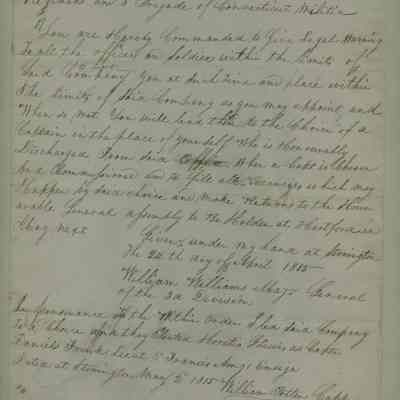 Regiment and 3 Brigade of Connecticut Militia
You are Hereby Commanded to Give Legal Warning
To all the officers an Soldiers within the limits of
Said Company You at such time and place within
The limits of Said Company as you may appoint and
When so Met You will lead them to the Choice of a
Captain in the place of yourself Who is Honorably
Discharged From Said office When a Capt is Chosen
and to fill all Vacancyes which may
Happen by Said choice and make Returns to the Honor
arable General assembly to the Holden at Hartford in
May next
Given under my hand at Stonington
The 24th day of April 1815
William Williams Major General
of the 3d Division
In pursuance to the Within order I led Said Company
to a Choice and they Elected Horatio as Capt
Daniel Lieut & Francis Ensign
Dated at Stonington May 2d 1815
William Potter Capt